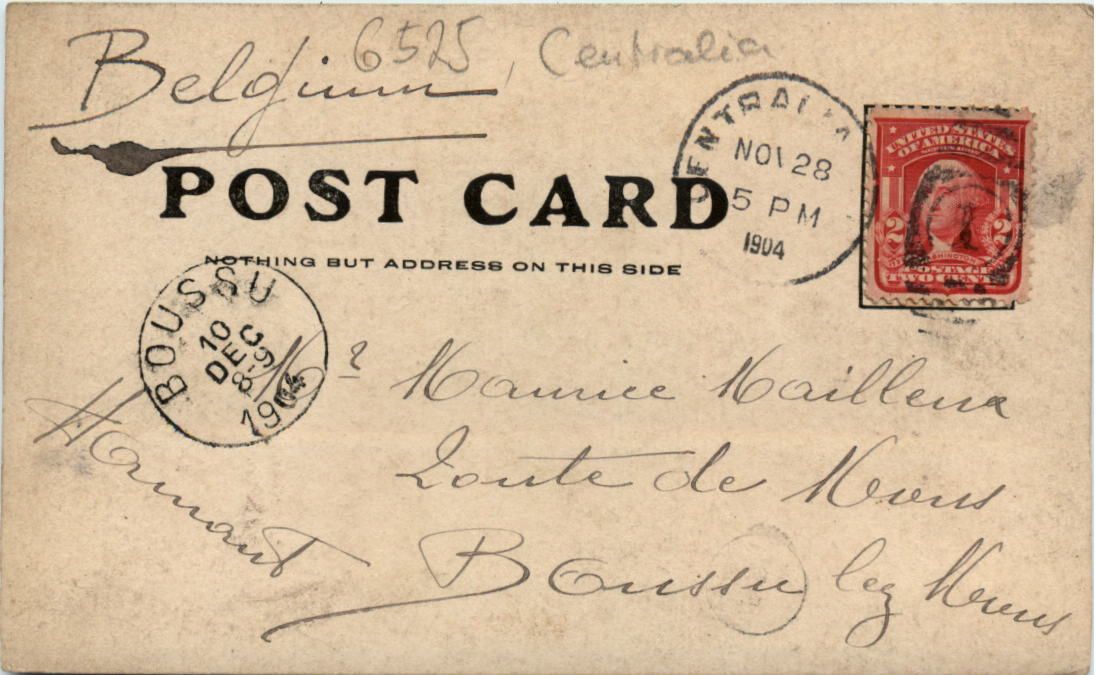 Belgium
6525, Centralia
CENTRALIA
NOV 28
5 PM
1904
UNITED STATES
OF AMERICA
2 2
WASHINGTON
POSTAGE
TWO CENTS
1
POST CARD
NOTHING BUT ADDRESS ON THIS SIDE
BOUSSU
10
DEC
8-9
1904
Mr Maurice Mailleux
Route de Mons
Boussu lez Mons
Hainaut